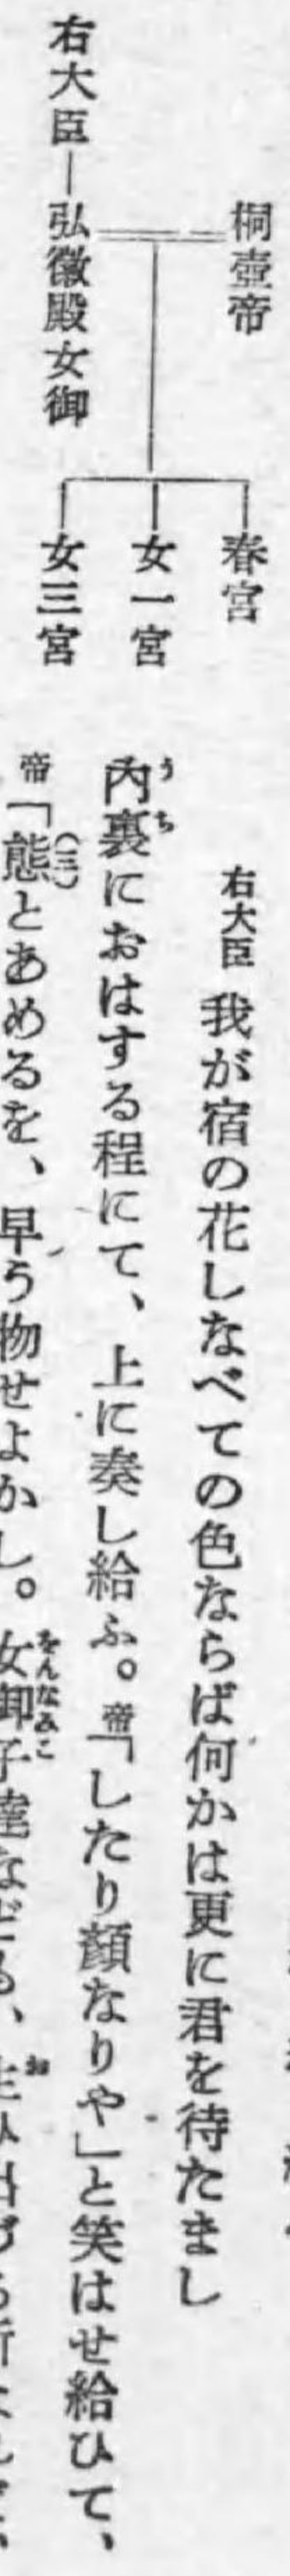 桐壺帝
右大臣―弘徽殿女御
春宮
女一宮
女三宮
右大臣 我が宿の花しなべての色ならば何かは更に君を待たまし
内裏におはする程にて、上に奏し給ふ。帝「したり顔なりや」と笑はせ給ひて、
うち
帝「態とあめるを、早う物せよかし。女御子達なども、
(三)
をんなみこ